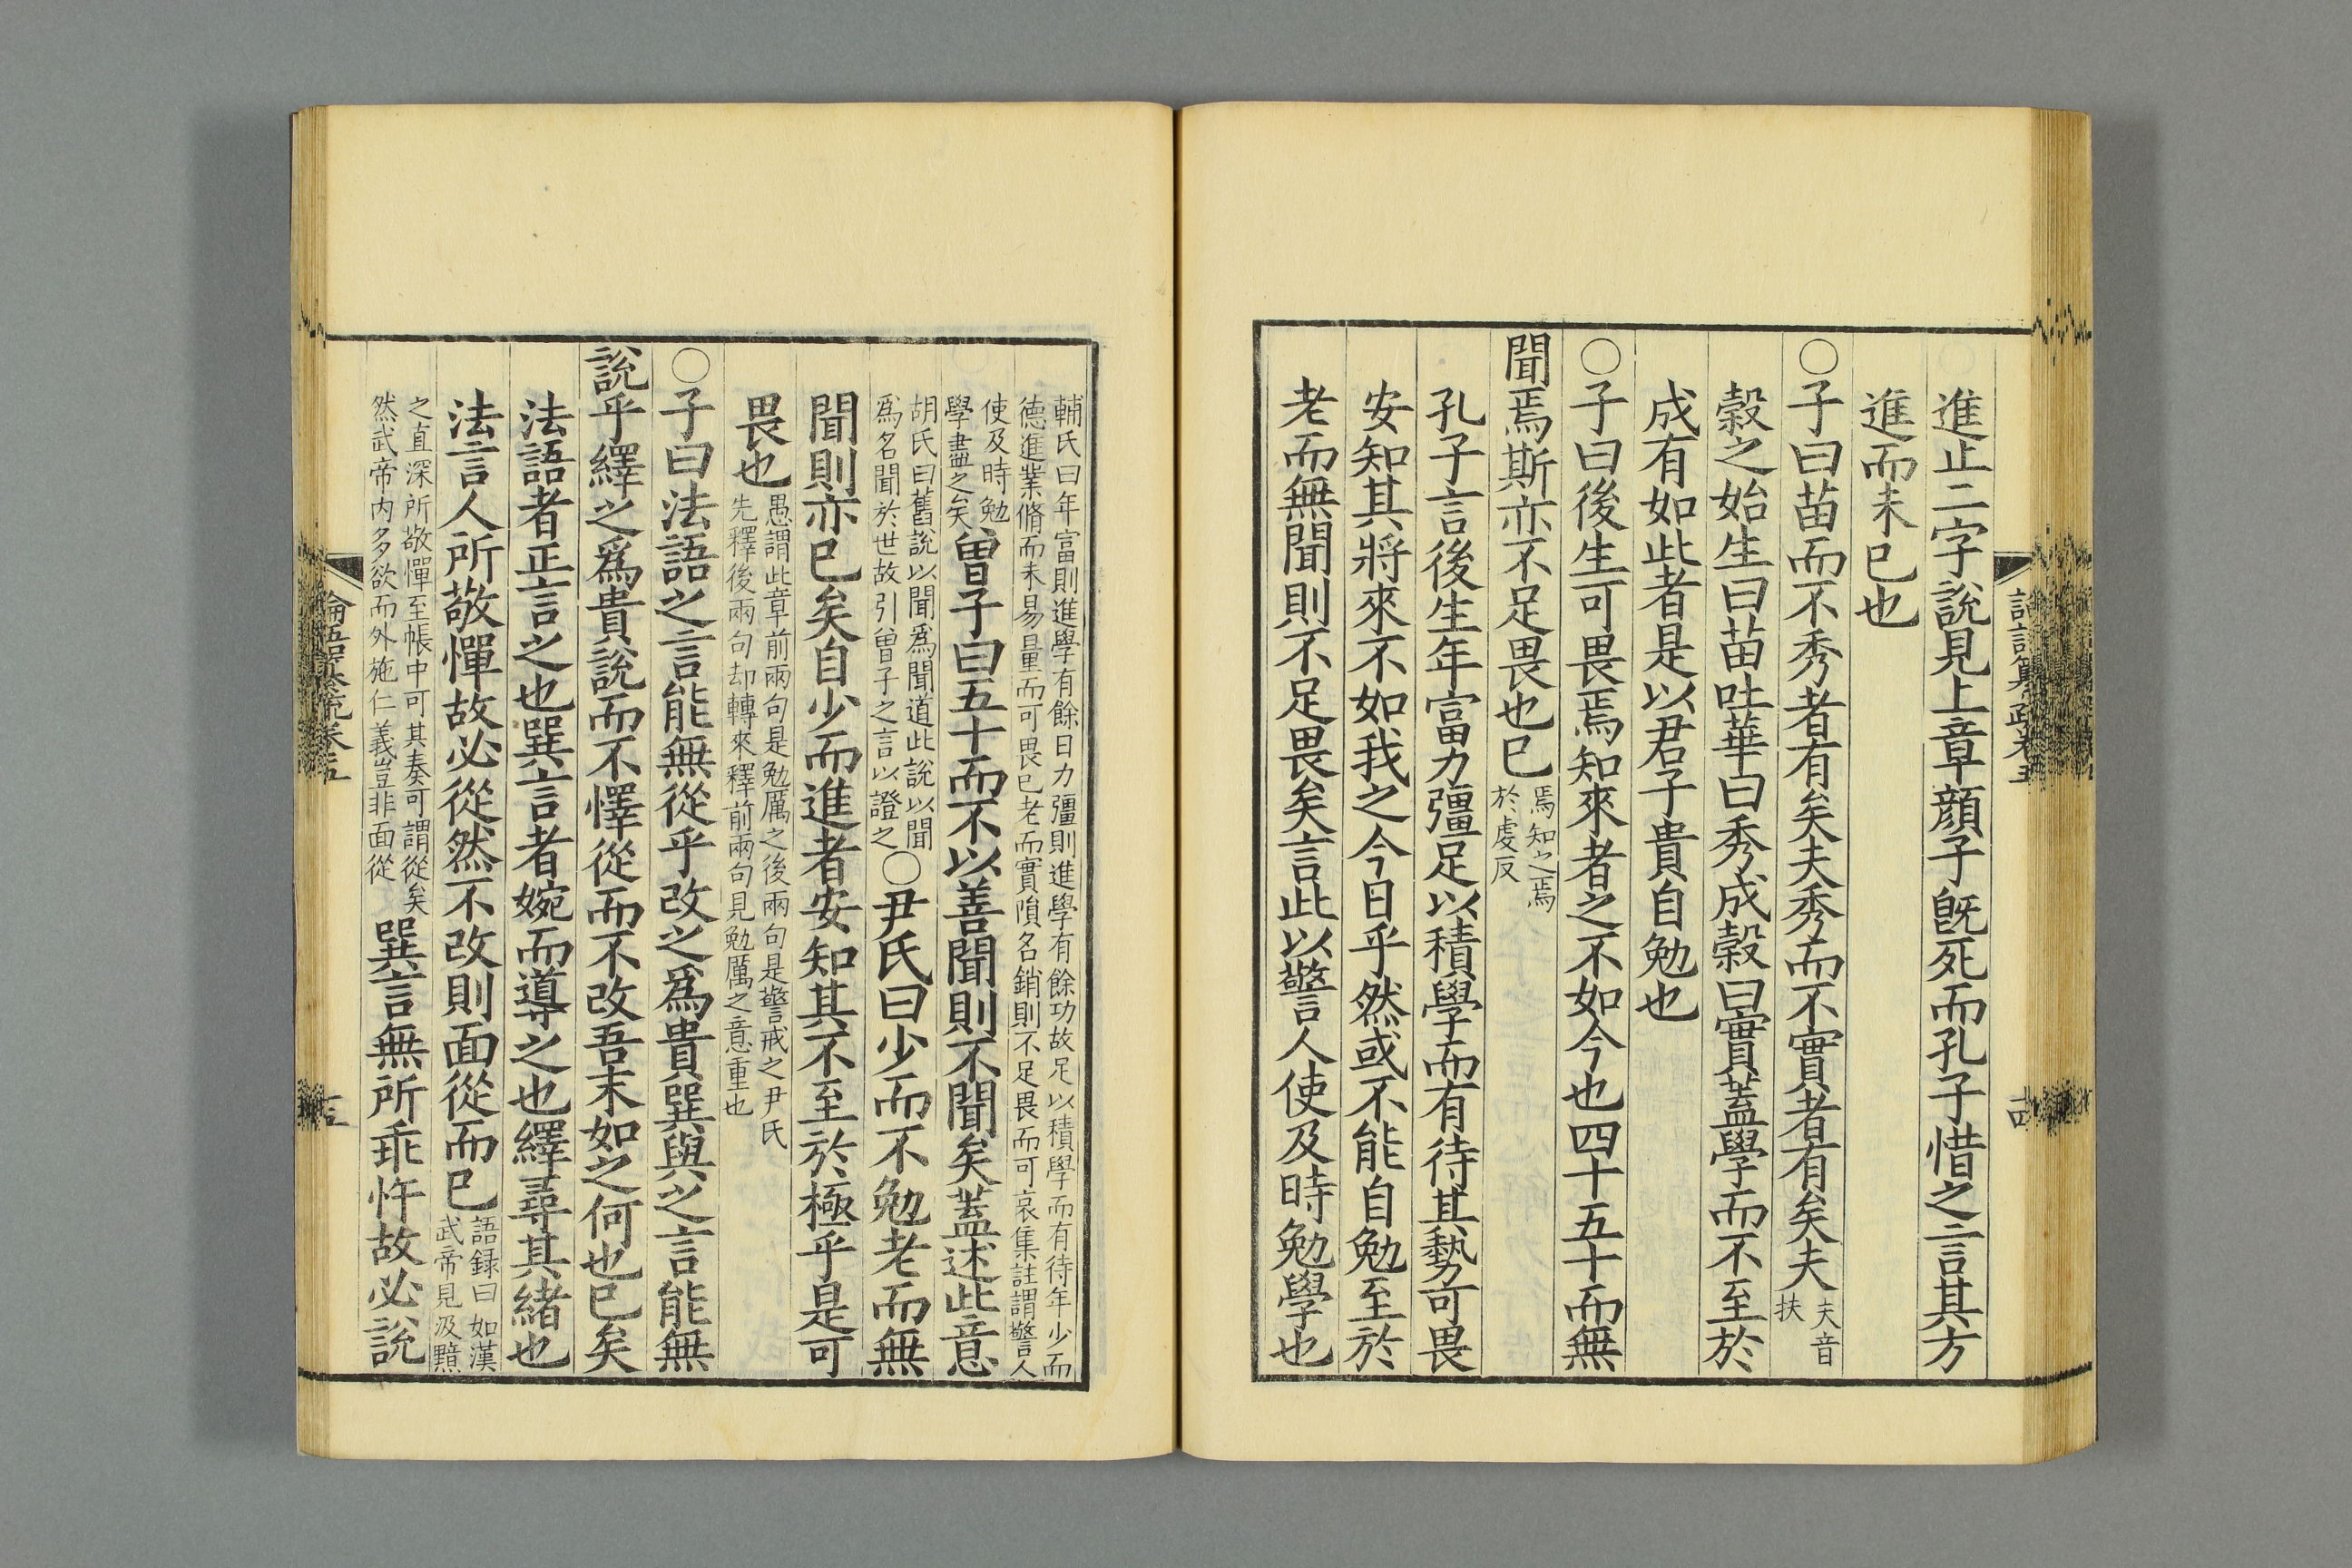 進止二字說見上章顔子旣死而孔子惜之言其方
進而未已也
〇子曰苗而不秀者有矣夫秀而不實者有矣夫
夫音
扶
榖之始生曰苗吐華曰秀成榖曰實蓋學而不至於
成有如此者是以君子貴自勉也
〇子曰後生可畏焉知來者之不如今也四十五十而無
聞焉斯亦不足畏也已
焉知之焉
於虔反
孔子言後生年富力彊足以積學而有待其勢可畏
安知其將來不如我之今日乎然或不能自勉至於
老而無聞則不足畏矣言此以警人使及時勉學也
十四
輔氏曰年富則進學有餘日力彊則進學有餘功故足以積學而有待年少而
德進業脩而未易量而可畏已老而實隕名銷則不足畏而可哀集註謂警人
使及時勉
學盡之矣
曽子曰五十而不以善聞則不聞矣蓋述此意
胡氏曰舊說以聞爲聞道此說以聞
爲名聞於世故引曽子之言以證之
〇尹氏曰少而不勉老而無
聞則亦已矣自少而進者安知其不至於極乎是可
畏也
愚謂此章前兩句是勉厲之後兩句是警戒之尹氏
先釋後兩句却轉來釋前兩句見勉厲之意重也
〇子曰法語之言能無從乎改之爲貴巽與之言能無
說乎繹之爲貴說而不懌從而不改吾末如之何也已矣
法語者正言之也巽言者婉而導之也繹尋其緒也
法言人所敬憚故必從然不改則面從而已
語録曰如漢
武帝見汲黯
之直深所敬憚至帳中可其奏可謂從矣
然武帝内多欲而外施仁義豈非面從
巽言無所乖忤故必說
論語纂疏卷五
十五